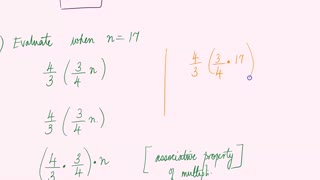 ) Evaluate when n = 17
4/3 (3/4 n)
4/3 (3/4 • 17)
4/3 (3/4 n)
(4/3 • 3/4) • n [associative property
of multipl